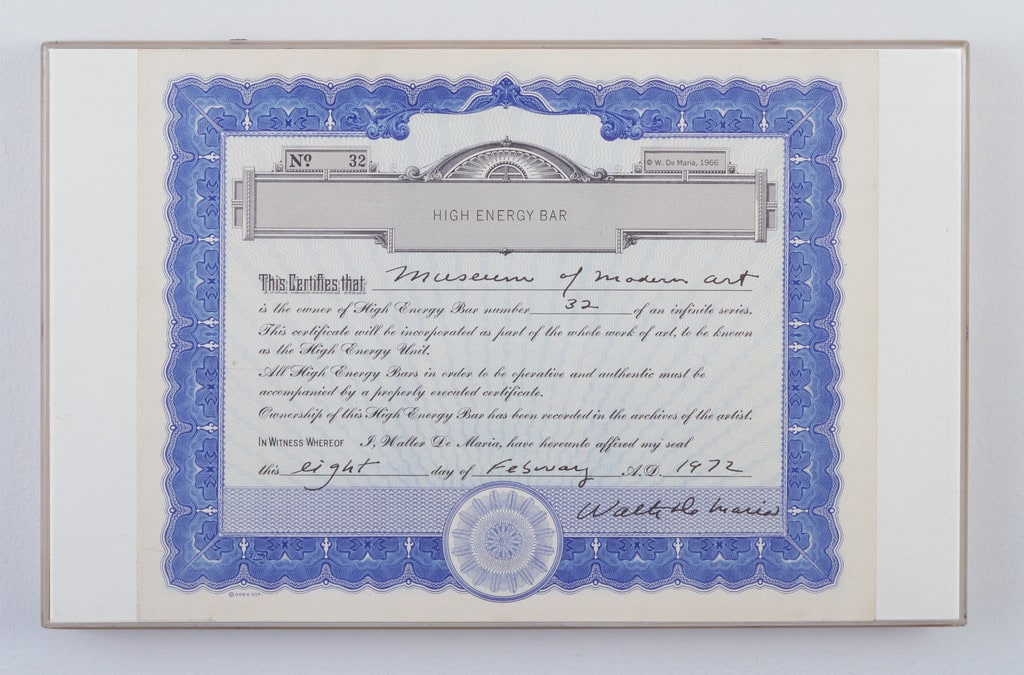 Nº 32
© W. De Maria, 1966
HIGH ENERGY BAR
This Certifies that Museum of Modern Art
is the owner of High Energy Bar number 32 of an infinite series.
This certificate will be incorporated as part of the whole work of art, to be known
as the High Energy Unit.
All High Energy Bars in order to be operative and authentic must be
accompanied by a properly executed certificate.
Ownership of this High Energy Bar has been recorded in the archives of the artist.
IN WITNESS WHEREOF I, Walter De Maria, have hereunto affixed my seal
this eight day of February A.D. 1972
Walter De Maria
© GOES